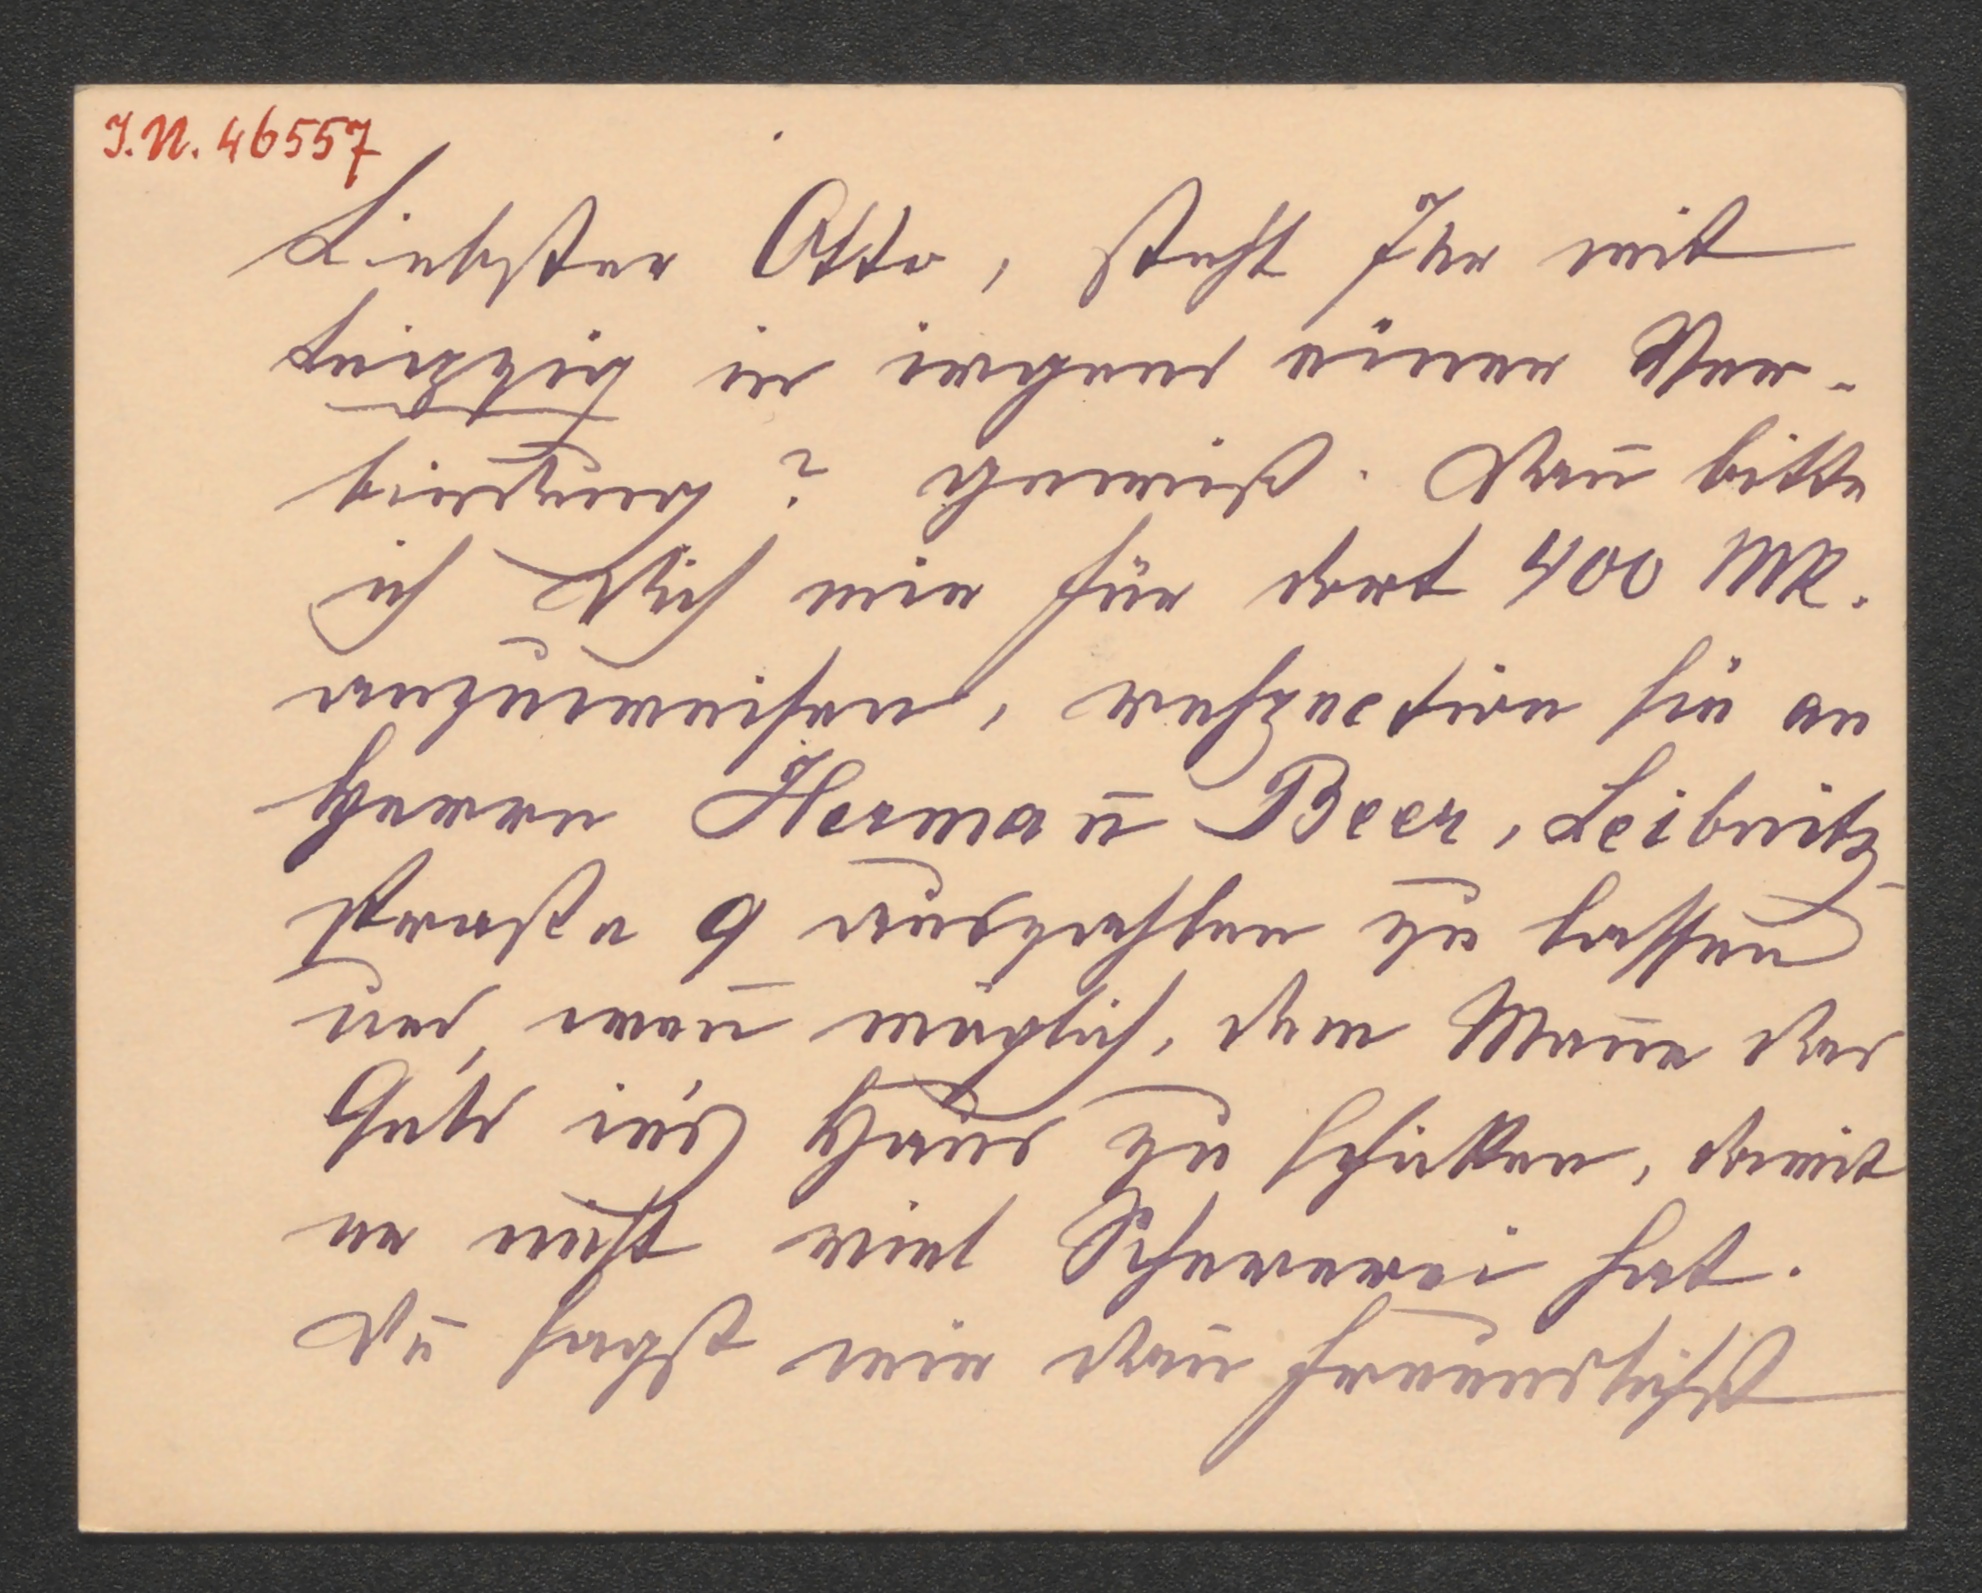 I.N. 46557
Liebster Otto, steht Ihr mit
Leipzig in irgend einer Ver-
bindung? gewiß. Dan̄ bitte
ich Dich mir für dort 400 MK.
anzuweisen, respective sie an
Herrn Herman̄ Beer, Leibnitz-
straße 9 auszahlen zu lassen
und, wen̄ möglich, dem Man̄e das
Geld in's Haus zu schicken, damit
er nicht viel Schererei hat.
Du sagst mir dan̄ freundlichst